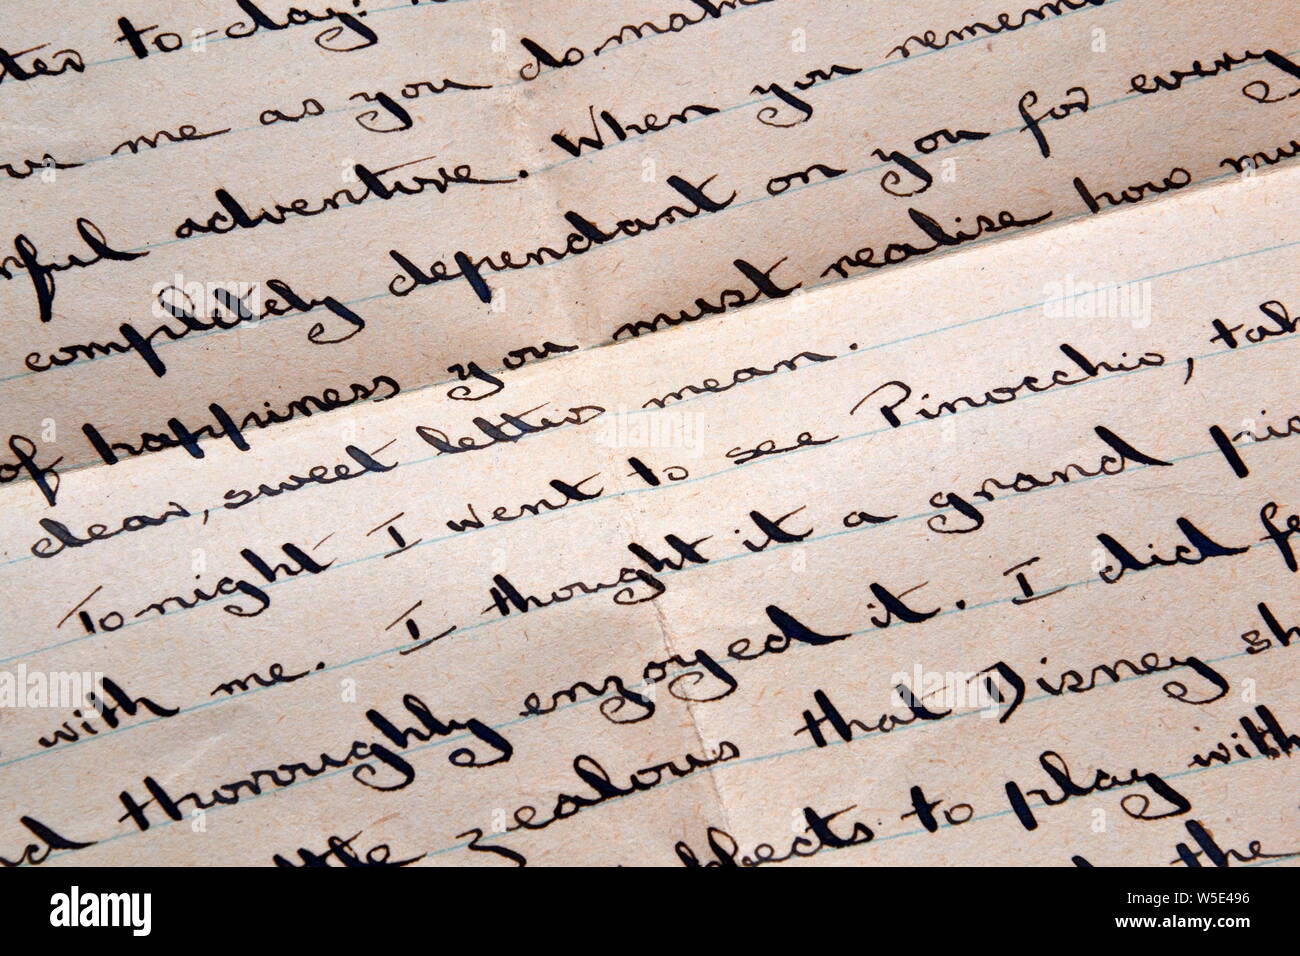 to-day.
me as you do
adventure. When you
completely dependant on you for every
of happiness you must realise how
dear, sweet letters mean.
To-night I went to see Pinocchio,
with me. I thought it a grand
thoroughly enjoyed it. I did
zealous that Disney
to play with
the
alamy
Image ID: W5E496
www.alamy.com